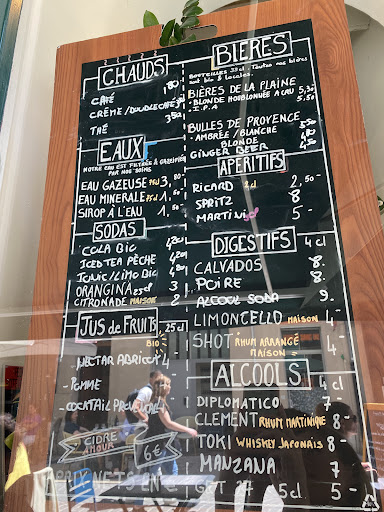 CHAUDS
CAFÉ 1,80
CRÈME/DOUBLE CAFÉ
THÉ
EAUX
NOTRE EAU EST FILTRÉE & GAZEIFIÉE
PAR NOS SOINS
EAU GAZEUSE 75cl 3,80
EAU MINERALE 75cl 1,50
SIROP À L'EAU 1,50
SODAS
COLA BIO 4,20
ICED TEA PÊCHE 4,20
TONIC/LIMO BIO
ORANGINA 25cl 3
CITRONADE MAISON 2
JUS de FRUITS 25 cl
BIO
- NECTAR ABRICOT 4
- POMME
- COCKTAIL PROVENCAL
CIDRE
AMOUR 6€
PRIX NETS EN €
BIÈRES
BOUTEILLES 33cl. Toutes nos bières
sont bio & locales.
BIÈRES DE LA PLAINE
- BLONDE HOUBLONNÉE A CRU 5,30
- I.P.A 5,50
BULLES DE PROVENCE
- AMBRÉE / BLANCHE 5,50
BLONDE
GINGER BEER
APERITIFS
RICARD 2cl 2,50
SPRITZ 8
MARTINI 5-
DIGESTIFS 4 cl
CALVADOS 8.
POIRE 8.
ALCOOL SODA 9.
LIMONCELLO MAISON 8-
SHOT RHUM ARRANGÉ
MAISON
ALCOOLS 4 cl
DIPLOMATICO 7
CLEMENT RHUM MARTINIQUE 8-
TOKI WHISKEY JAPONAIS 8-
MANZANA 7-
GET 24 5cl 5